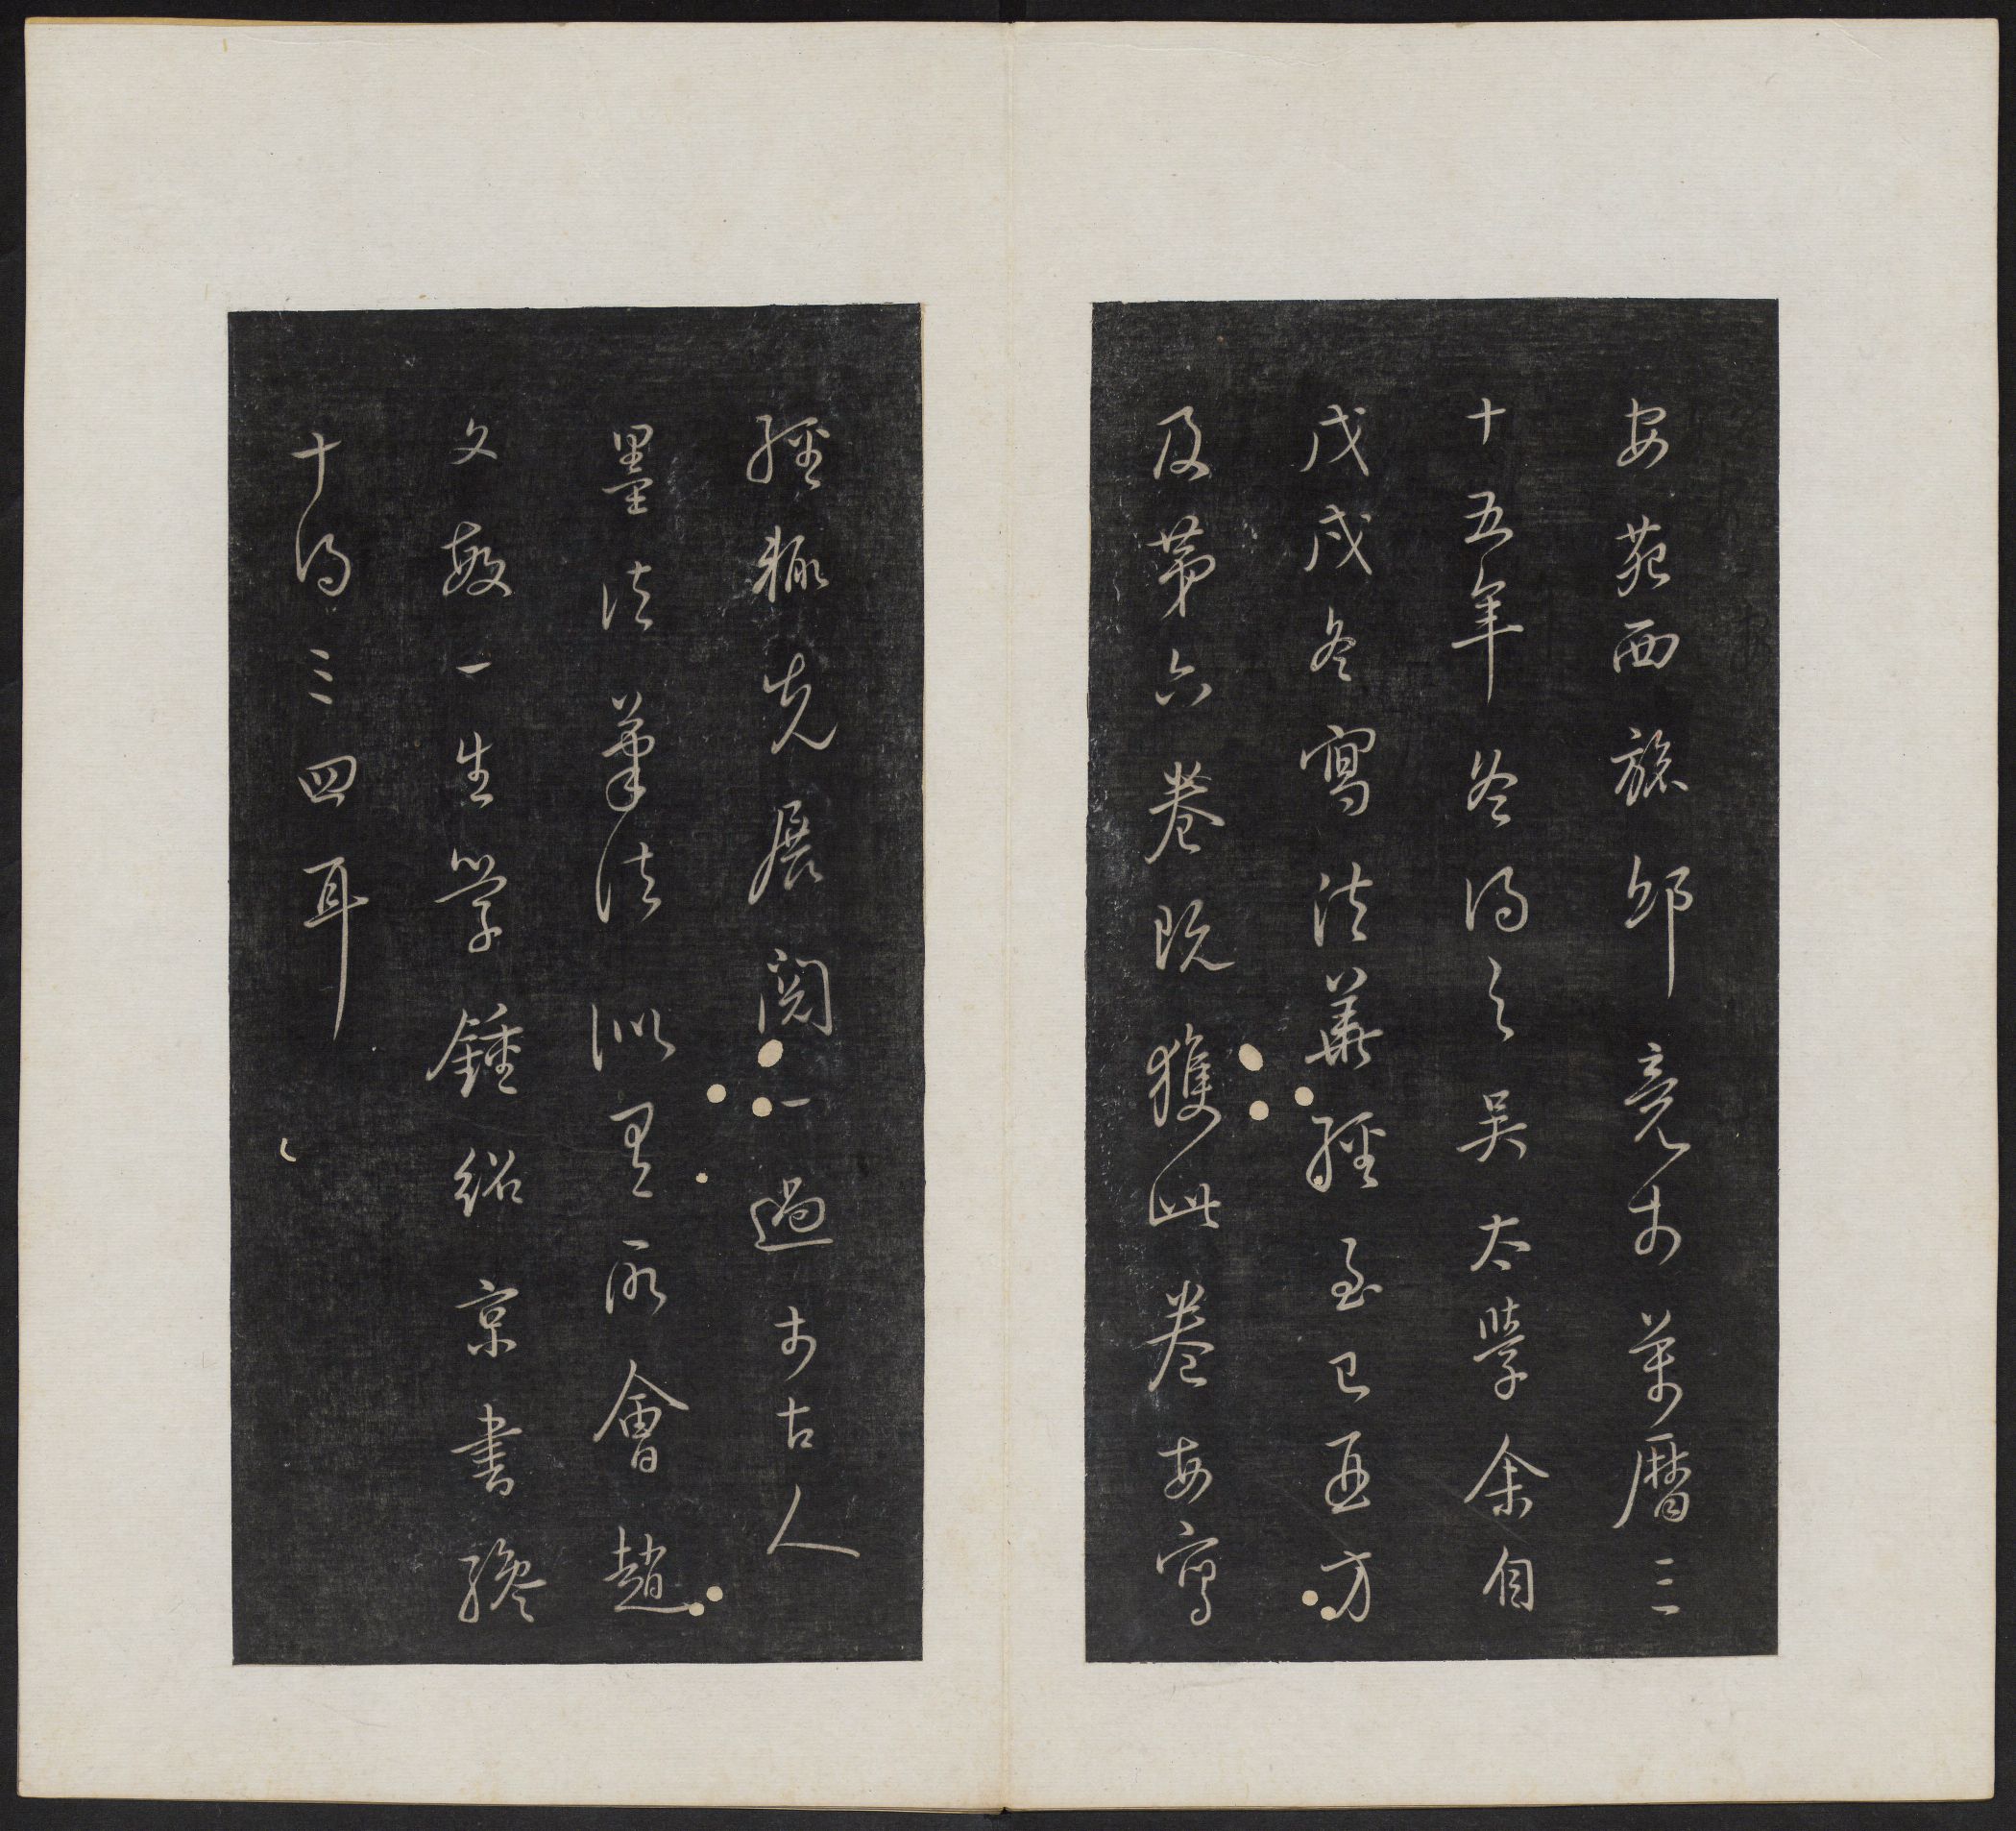 安苑西旅邸竟於萬曆三
十五年冬得之吳太學余自
戊戌冬寫法華經至己亥方
及第六卷既獲此卷每寫
經輒先展閱一過於古人
墨法筆法似有所會趙
文敏一生學鍾紹京書纔
十得三四耳